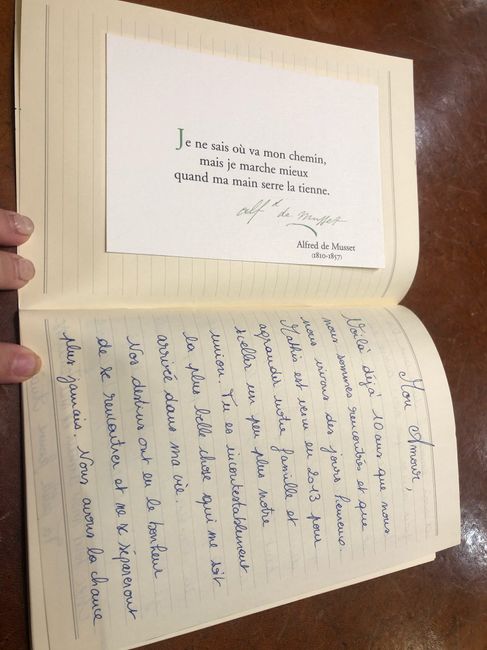 Je ne sais où va mon chemin,
mais je marche mieux
quand ma main serre la tienne.
alfd de Musset
Alfred de Musset
(1810-1857)
Mon Amour,
Voilà déjà 10 ans que nous
nous sommes rencontrés et que
nous vivons des jours heureux.
Mathis est venu en 2013 pour
agrandir notre famille et
sceller un peu plus notre
union. Tu es incontestablement
la plus belle chose qui me soit
arrivée dans ma vie.
Nos destins ont eu le bonheur
de se rencontrer et ne se sépareront
plus jamais. Nous avons la chance